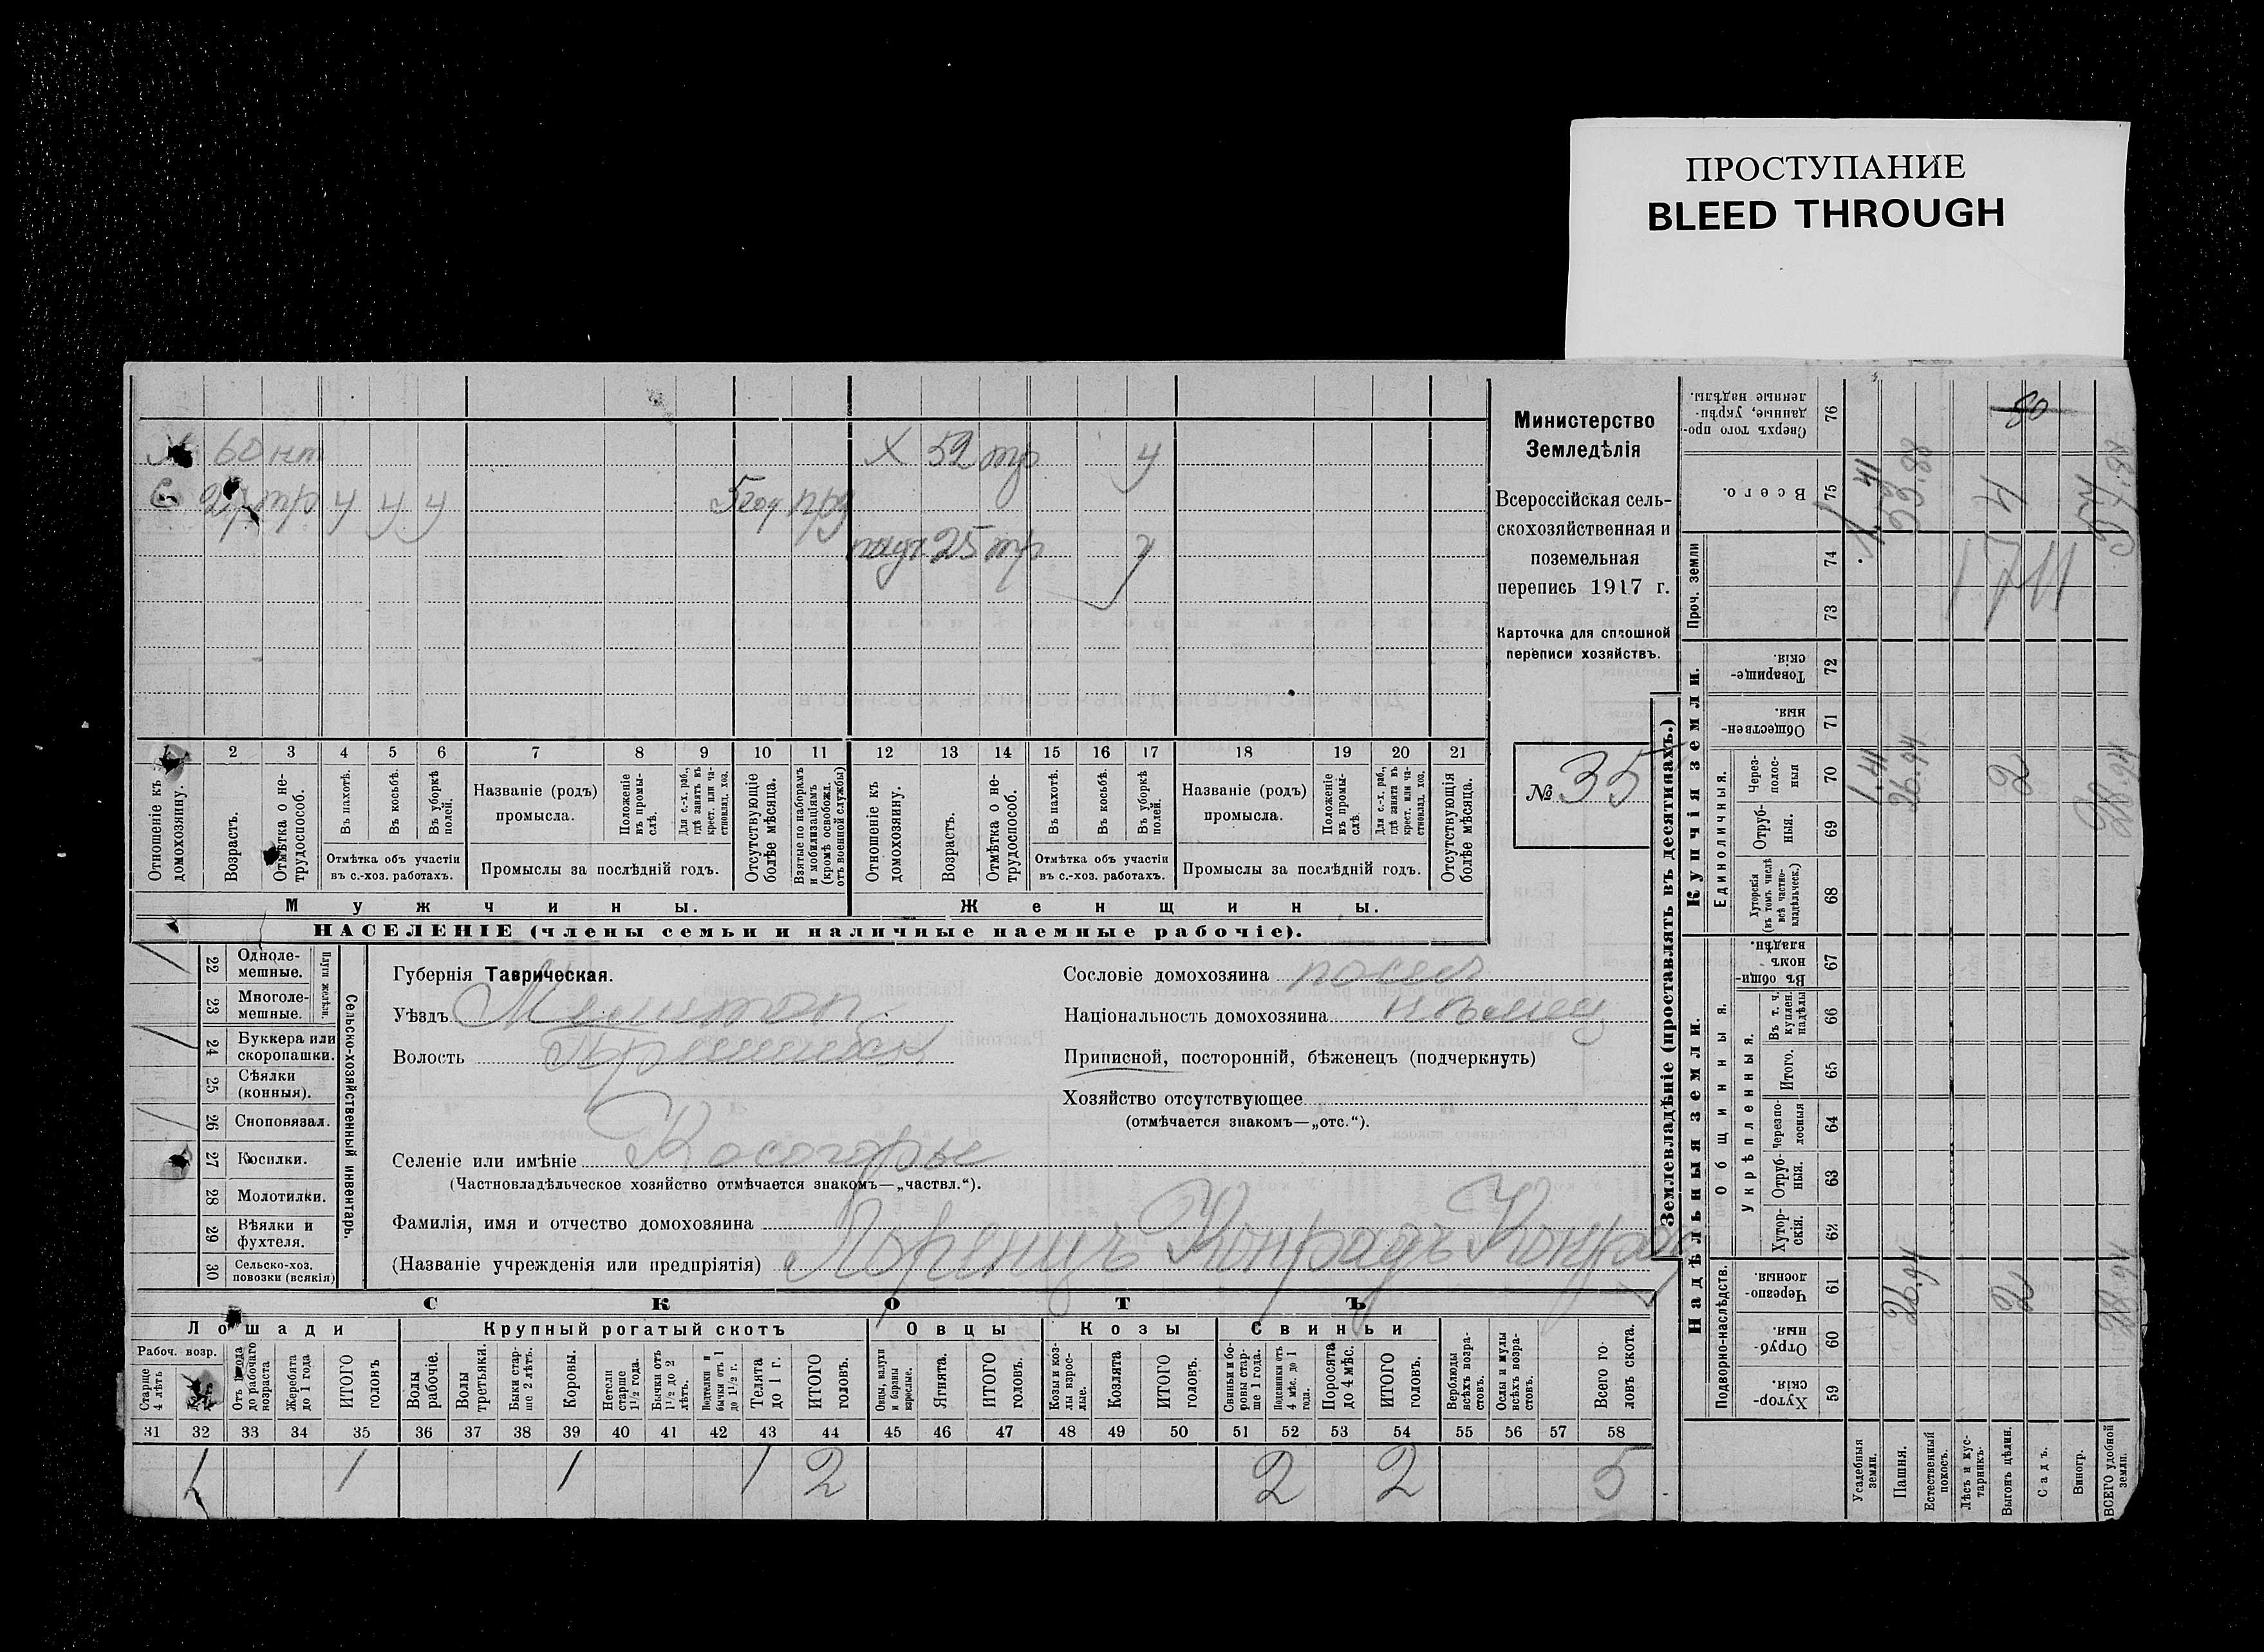 ПРОСТУПАНИЕ
BLEED THROUGH
Х 60 нт Х 52 тр у
С тр у у у 5 год 25 тр у
1 2 3 4 5 6 7 8 9 10 11 12 13 14 15 16 17 18 19 20 21
Отношеніе къ домохозяину.
Возрастъ.
Отмѣтка о не-трудоспособ.
Въ пахотѣ.
Въ косьбѣ.
Въ уборкѣ полей.
Отмѣтка объ участіи
въ с.-хоз. работахъ.
Названіе (родъ)
промысла.
Положеніе въ промы-слѣ.
Для с.-х. раб., гдѣ занятъ въ крест. или ча-стновлад. хоз.
Промыслы за послѣдній годъ.
Отсутствующіе болѣе мѣсяца.
Взятые по наборамъ и мобилизаціямъ (кромѣ освобожд. отъ военной службы)
Отношеніе къ домохозяину.
Возрастъ.
Отмѣтка о не-трудоспособ.
Въ пахотѣ.
Въ косьбѣ.
Въ уборкѣ полей.
Отмѣтка объ участіи
въ с.-хоз. работахъ.
Названіе (родъ)
промысла.
Положеніе въ промы-слѣ.
Для с.-х. раб., гдѣ занята въ крест. или ча-стновлад. хоз.
Промыслы за послѣдній годъ.
Отсутствующія болѣе мѣсяца.
Мужчины. Женщины.
НАСЕЛЕНІЕ (члены семьи и наличные наемные рабочіе).
Министерство
Земледѣлія
Всероссійская сель-
скохозяйственная и
поземельная
перепись 1917 г.
Карточка для сплошной
переписи хозяйствъ.
№ 35
Сельско-хозяйственный инвентарь.
Плуги желѣзн.
22 Одноле-мешные.
23 Многоле-мешные.
24 Буккера или скоропашки.
25 Сѣялки (конныя).
26 Сноповязал.
27 Косилки.
28 Молотилки.
29 Вѣялки и фухтеля.
30 Сельско-хоз. повозки (всякія)
Губернія Таврическая.
Уѣздъ Мелитоп.
Волость Пришибск
Селеніе или имѣніе Косогорье
(Частновладѣльческое хозяйство отмѣчается знакомъ—„частвл.“).
Фамилія, имя и отчество домохозяина
(Названіе учрежденія или предпріятія) Лоренцъ Конрадъ Конрад
Сословіе домохозяина посел
Національность домохозяина нѣмец
Приписной, посторонній, бѣженецъ (подчеркнуть)
Хозяйство отсутствующее
(отмѣчается знакомъ—„отс.“).
СКОТЪ
Лошади Крупный рогатый скотъ Овцы Козы Свиньи
Рабоч. возр.
Старше 4 лѣтъ
Отъ 1 года до рабочаго возраста
Жеребята до 1 года
ИТОГО головъ
Волы рабочіе.
Волы третьяки.
Быки стар-ше 2 лѣтъ.
Коровы.
Нетели старше 1½ года.
Бычки отъ 1½ до 2 лѣтъ.
Подтелки и бычки отъ 1 до 1½ г.
Телята до 1 г.
ИТОГО головъ.
Овцы, валухи и бараны взрослые.
Ягнята.
ИТОГО головъ.
Козы и коз-лы взрос-лые.
Козлята
ИТОГО головъ.
Свиньи и бо-ровы стар-ше 1 года.
Подсвинки отъ 4 мѣс. до 1 года.
Поросята до 4 мѣс.
ИТОГО головъ.
Верблюды всѣхъ возра-стовъ.
Ослы и мулы всѣхъ возра-стовъ.
Всего го-ловъ скота.
31 32 33 34 35 36 37 38 39 40 41 42 43 44 45 46 47 48 49 50 51 52 53 54 55 56 57 58
1 1 1 1 2 2 2 5
Землевладѣніе (проставлять въ десятинахъ.)
Надѣльныя земли. Купчія земли.
Подворно-наслѣдств.
Общинныя.
Укрѣпленныя.
Единоличныя.
Проч. земли
59 Хутор-скія
60 Отруб-ныя.
61 Черезпо-лосныя
62 Хутор-скія.
63 Отруб-ныя.
64 Черезпо-лосныя
65 Итого.
66 Въ т. ч. куплен. надѣлы
67 Въ общин-номъ владѣн.
68 Хуторскія (въ томъ числѣ всѣ частно-владѣльческ.)
69 Отруб-ныя.
70 Через-полос-ныя
71 Обществен-ныя.
72 Товарище-скія.
73
74
75 Всего.
76 Сверхъ того про-данные, укрѣп-ленные надѣлы.
Усадебныя земли. 1.41 1.41
Пашня. 26.94 26.94 53.88
Естественный покосъ.
Лѣсъ и кус-тарникъ.
Выгонъ цѣлин. 2 2 4
Садъ.
Виногр.
ВСЕГО удобной земли. 28.94